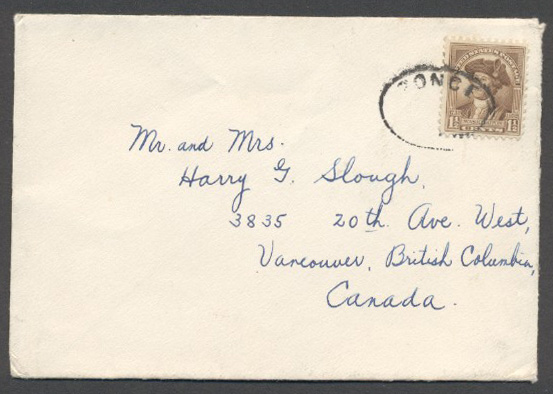 UNITED STATES POSTAGE
1½ 1½
CENTS
PONCE
Mr. and Mrs.
Harry G. Slough,
3835 20th Ave. West,
Vancouver, British Columbia,
Canada.